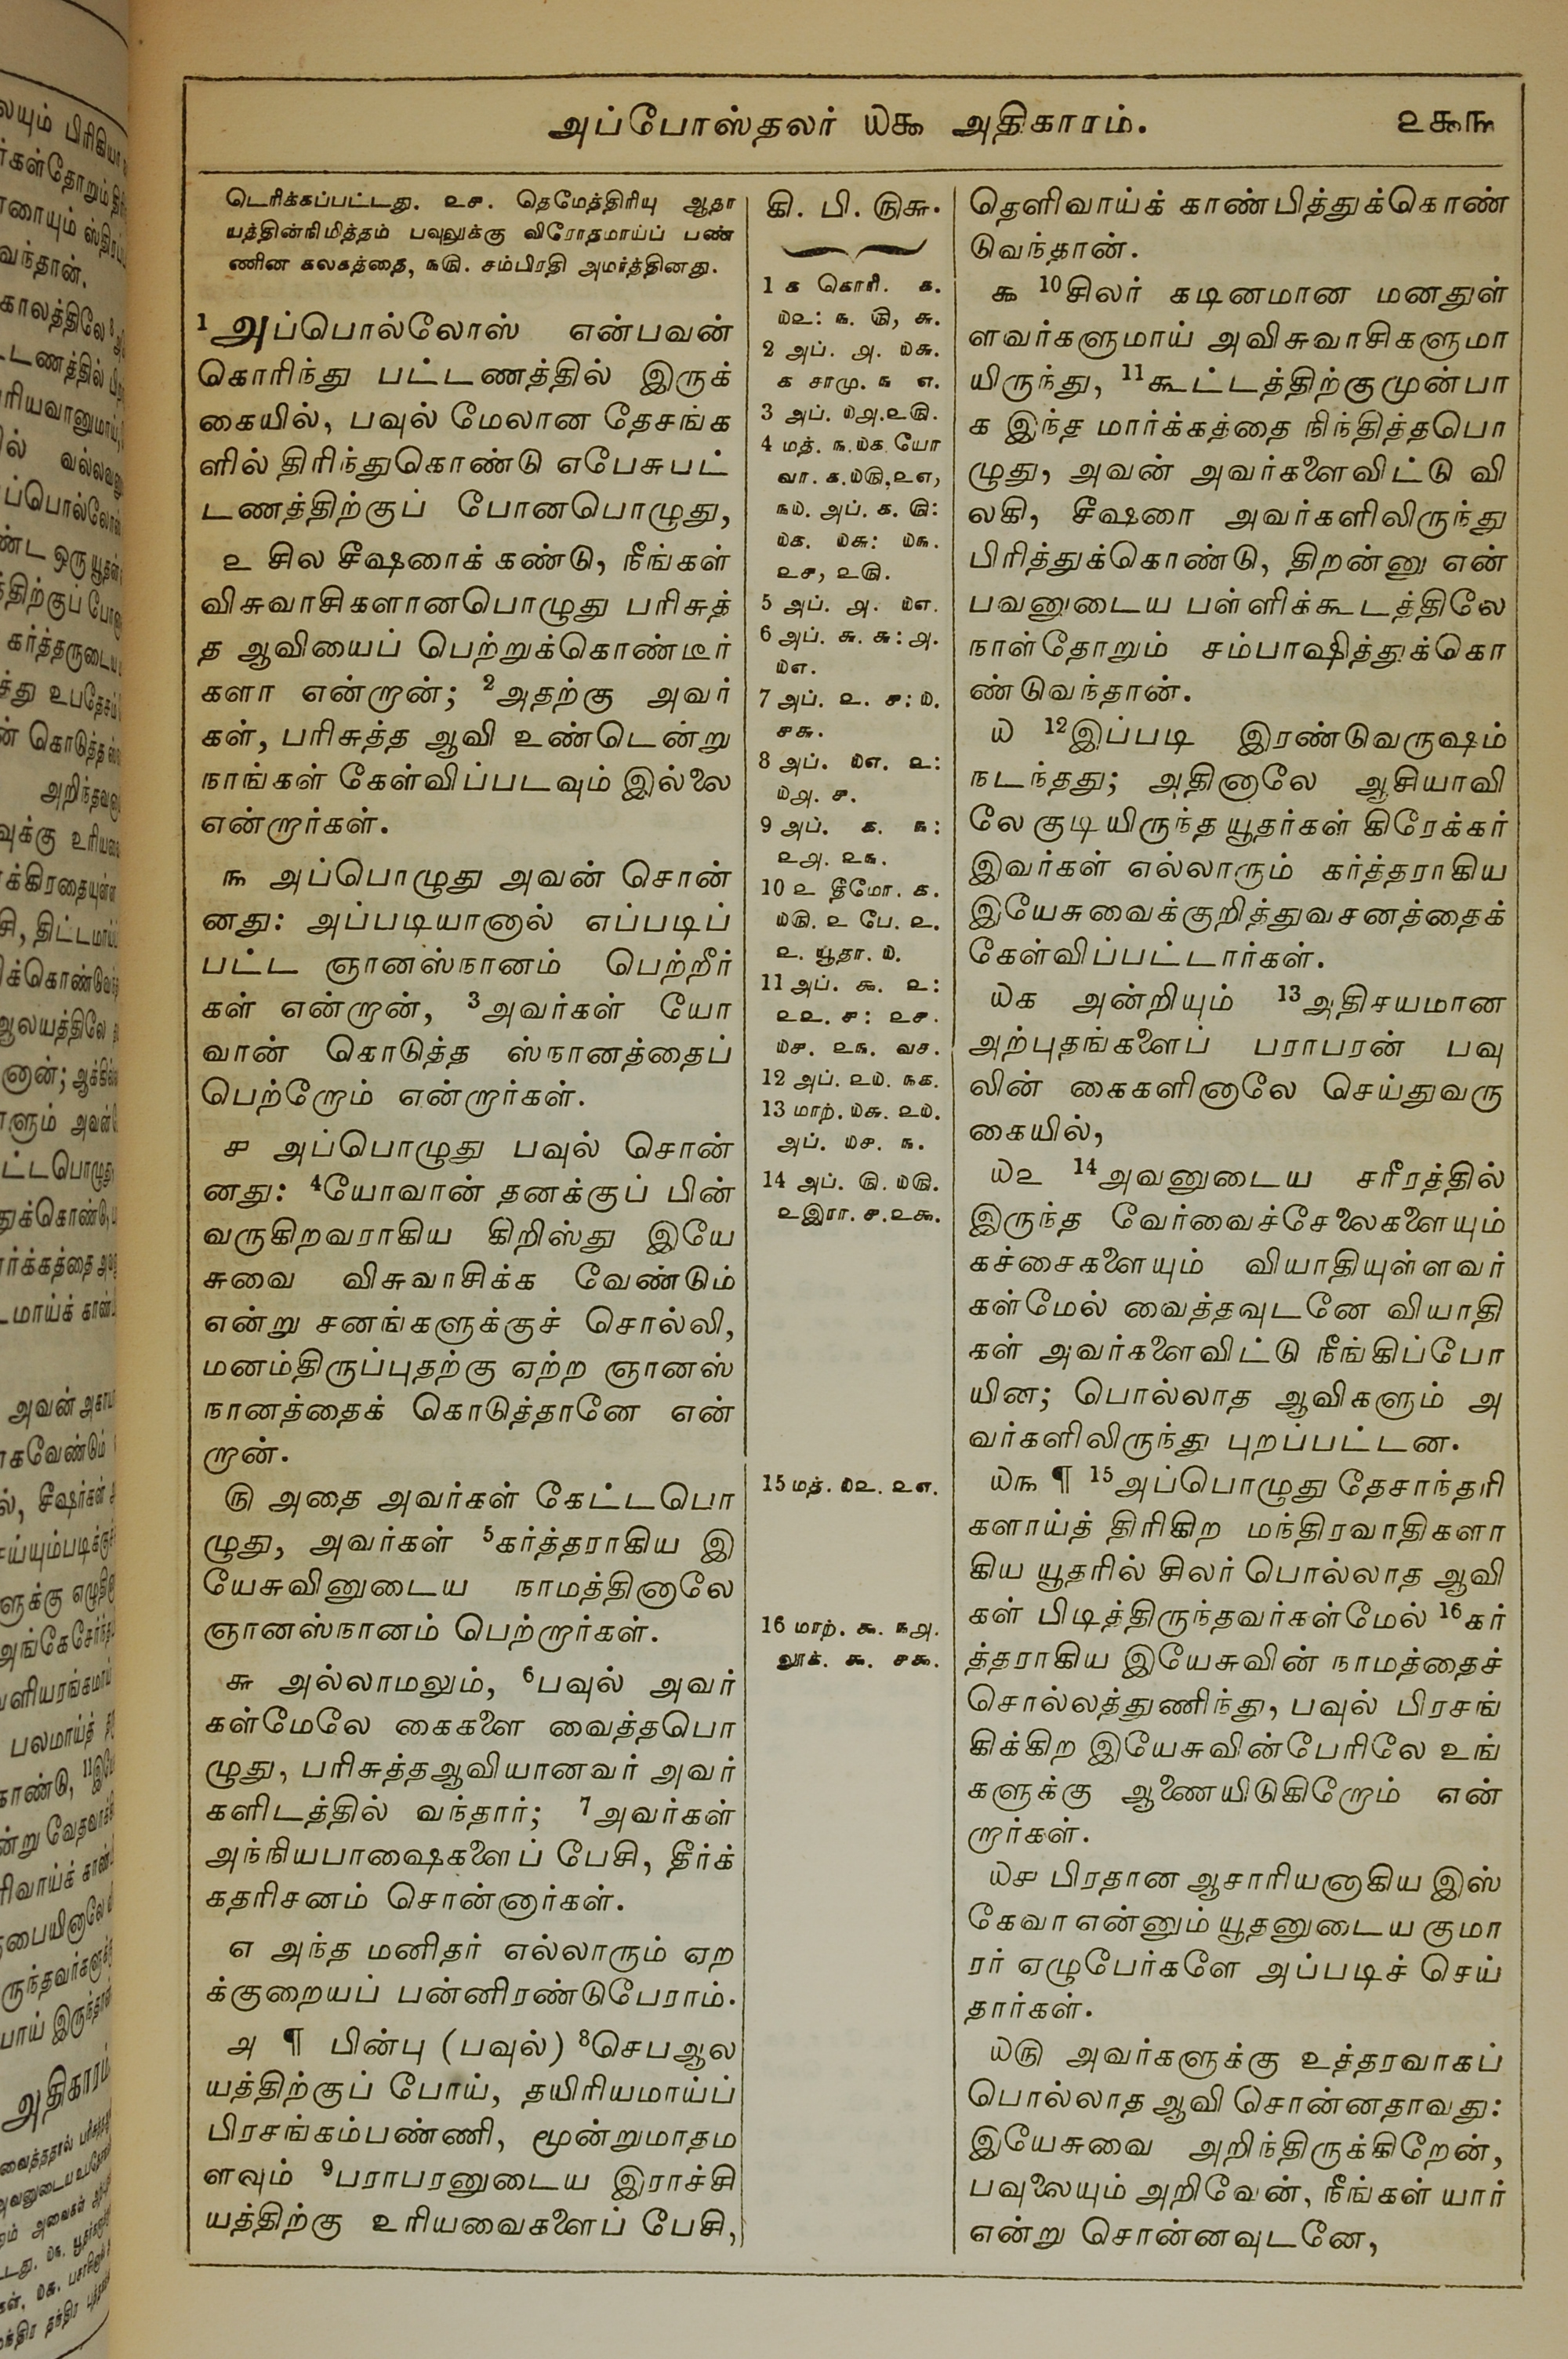 அப்போஸ்தலர் ௰௯ அதிகாரம்.
௨௯௩
டெரிக்கப்பட்டது. ௨௪. தெமேத்திரியு ஆதா
யத்தின்நிமித்தம் பவுலுக்கு விரோதமாய்ப் பண்
ணின கலகத்தை, ௩௫. சம்பிரதி அமர்த்தினது.
1 அப்பொல்லோஸ் என்பவன்
கொரிந்து பட்டணத்தில் இருக்
கையில், பவுல் மேலான தேசங்க
ளில் திரிந்துகொண்டு எபேசுபட்
டணத்திற்குப் போனபொழுது,
௨ சில சீஷரைக் கண்டு, நீங்கள்
விசுவாசிகளானபொழுது பரிசுத்
த ஆவியைப் பெற்றுக்கொண்டீர்
களா என்றான்; 2அதற்கு அவர்
கள், பரிசுத்த ஆவி உண்டென்று
நாங்கள் கேள்விப்படவும் இல்லை
என்றார்கள்.
௩ அப்பொழுது அவன் சொன்
னது: அப்படியானால் எப்படிப்
பட்ட ஞானஸ்நானம் பெற்றீர்
கள் என்றான், 3அவர்கள் யோ
வான் கொடுத்த ஸ்நானத்தைப்
பெற்றோம் என்றார்கள்.
௪ அப்பொழுது பவுல் சொன்
னது: 4யோவான் தனக்குப் பின்
வருகிறவராகிய கிறிஸ்து இயே
சுவை விசுவாசிக்க வேண்டும்
என்று சனங்களுக்குச் சொல்லி,
மனம்திருப்புதற்கு ஏற்ற ஞானஸ்
நானத்தைக் கொடுத்தானே என்
றான்.
௫ அதை அவர்கள் கேட்டபொ
ழுது, அவர்கள் 5கர்த்தராகிய இ
யேசுவினுடைய நாமத்தினாலே
ஞானஸ்நானம் பெற்றார்கள்.
௬ அல்லாமலும், 6பவுல் அவர்
கள்மேலே கைகளை வைத்தபொ
ழுது, பரிசுத்தஆவியானவர் அவர்
களிடத்தில் வந்தார்; 7அவர்கள்
அந்நியபாஷைகளைப் பேசி, தீர்க்
கதரிசனம் சொன்னார்கள்.
௭ அந்த மனிதர் எல்லாரும் ஏற
க்குறையப் பன்னிரண்டுபேராம்.
௮ ¶ பின்பு (பவுல்) 8செபஆல
யத்திற்குப் போய், தயிரியமாய்ப்
பிரசங்கம்பண்ணி, மூன்றுமாதம
ளவும் 9பராபரனுடைய இராச்சி
யத்திற்கு உரியவைகளைப் பேசி,
கி. பி. ௫௬.
1 ௧ கொரி. ௧.
௰௨: ௩. ௫, ௬.
2 அப். ௮. ௰௬.
௧ சாமு. ௩ ௭.
3 அப். ௰௮.௨௫.
4 மத். ௩.௰௧ யோ
வா. ௧.௰௫.௨௭,
௩௰. அப். ௧. ௫:
௰௧. ௰௬: ௰௩.
௨௪, ௨௫.
5 அப். ௮. ௰௭.
6 அப். ௬. ௬: ௮.
௰௭.
7 அப். ௨. ௪: ௰.
௪௬.
8 அப். ௰௭. ௨:
௰௮. ௪.
9 அப். ௧. ௩:
௨௮. ௨௩.
10 ௨ தீமோ. ௧.
௰௫. ௨ பே. ௨.
௨. யூதா. ௰.
11 அப். ௯. ௨:
௨௨. ௪: ௨௪.
௰௪. ௨௩. வச.
12 அப். ௨௰. ௩௧.
13 மாற். ௰௬. ௨௰.
அப். ௰௪. ௩.
14 அப். ௫. ௰௫.
௨இரா. ௪.௨௯.
15 மத். ௰௨. ௨௭.
16 மாற். ௯. ௩௮.
லூக். ௯. ௪௯.
தெளிவாய்க் காண்பித்துக்கொண்
டுவந்தான்.
௯ 10சிலர் கடினமான மனதுள்
ளவர்களுமாய் அவிசுவாசிகளுமா
யிருந்து, 11கூட்டத்திற்குமுன்பா
க இந்த மார்க்கத்தை நிந்தித்தபொ
ழுது, அவன் அவர்களைவிட்டு வி
லகி, சீஷரை அவர்களிலிருந்து
பிரித்துக்கொண்டு, திறன்னு என்
பவனுடைய பள்ளிக்கூடத்திலே
நாள்தோறும் சம்பாஷித்துக்கொ
ண்டுவந்தான்.
௰ 12இப்படி இரண்டுவருஷம்
நடந்தது; அதினாலே ஆசியாவி
லே குடியிருந்த யூதர்கள் கிரேக்கர்
இவர்கள் எல்லாரும் கர்த்தராகிய
இயேசுவைக்குறித்துவசனத்தைக்
கேள்விப்பட்டார்கள்.
௰௧ அன்றியும் 13அதிசயமான
அற்புதங்களைப் பராபரன் பவு
லின் கைகளினாலே செய்துவரு
கையில்,
௰௨ 14அவனுடைய சரீரத்தில்
இருந்த வேர்வைச்சேலைகளையும்
கச்சைகளையும் வியாதியுள்ளவர்
கள்மேல் வைத்தவுடனே வியாதி
கள் அவர்களைவிட்டு நீங்கிப்போ
யின; பொல்லாத ஆவிகளும் அ
வர்களிலிருந்து புறப்பட்டன.
௰௩ ¶ 15அப்பொழுது தேசாந்தரி
களாய்த் திரிகிற மந்திரவாதிகளா
கிய யூதரில் சிலர் பொல்லாத ஆவி
கள் பிடித்திருந்தவர்கள்மேல் 16கர்
த்தராகிய இயேசுவின் நாமத்தைச்
சொல்லத்துணிந்து, பவுல் பிரசங்
கிக்கிற இயேசுவின்பேரிலே உங்
களுக்கு ஆணையிடுகிறோம் என்
றார்கள்.
௰௪ பிரதான ஆசாரியனாகிய இஸ்
கேவா என்னும் யூதனுடைய குமா
ரர் ஏழுபேர்களே அப்படிச் செய்
தார்கள்.
௰௫ அவர்களுக்கு உத்தரவாகப்
பொல்லாத ஆவி சொன்னதாவது:
இயேசுவை அறிந்திருக்கிறேன்,
பவுலையும் அறிவேன், நீங்கள் யார்
என்று சொன்னவுடனே,